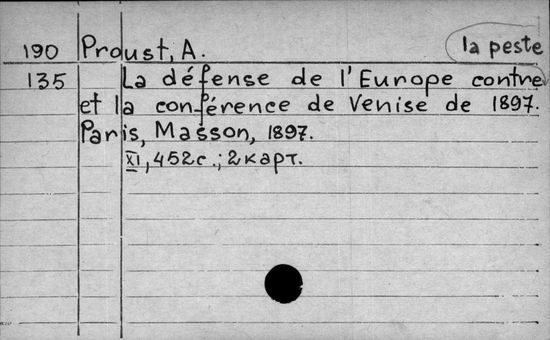 190 Proust, A. la peste
135 La défense de l'Europe contre
et la conférence de Venise de 1897.
Paris, Masson, 1897.
XI, 452 с.; 2 карт.